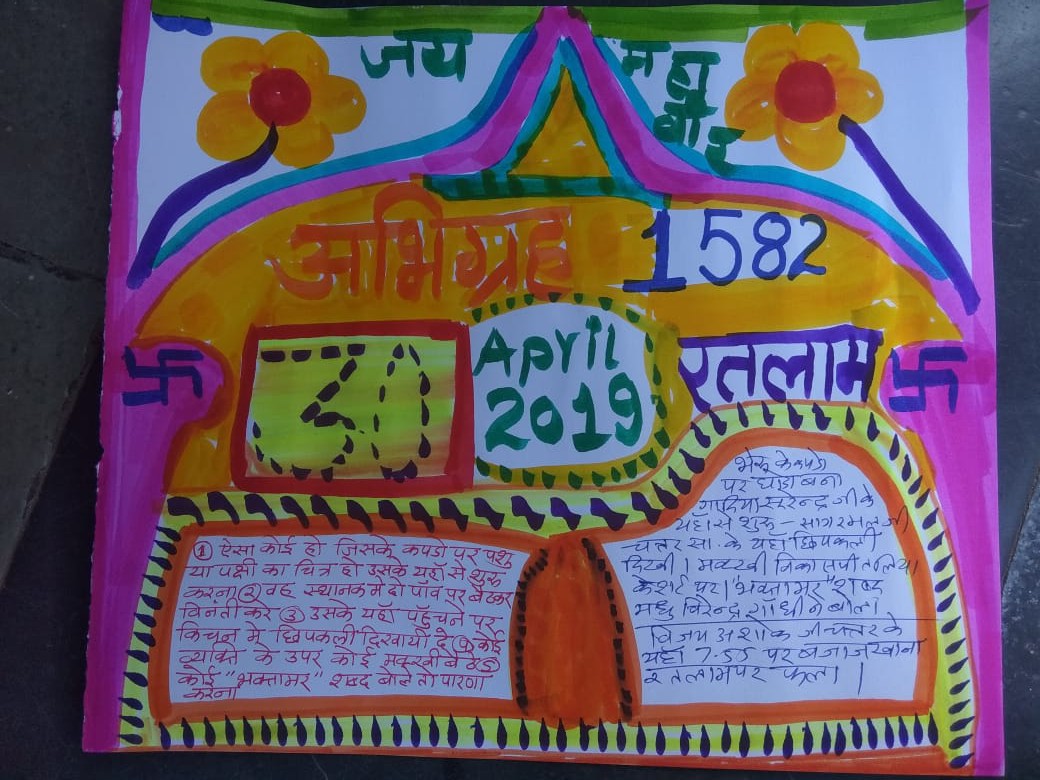 जय महा
वीर
अभिग्रह 1582
30 April 2019 रतलाम
① ऐसा कोई हो जिसके कपडो पर पशु
या पक्षी का चित्र हो उसके यहाँ से शुरू
करना ② वह स्थानक मे दो पांव पर बैठकर
विनती करे ③ उसके यहाँ पहुँचने पर
किचन मे छिपकली दिखायी दे ④ कोई
व्यक्ति के उपर कोई मक्खी बैठे ⑤
कोई "भक्तामर" शब्द बोले तो पारणा
करना
के कपडो
पर घोडा बना
गादिया सुरेन्द्र जी के
यहाँ से शुरू - सागरमल जी
चत्तर सा. के यहाँ छिपकली
दिखी। मक्खी
के शर्ट पर। "भक्तामर" शब्द
मधु विरेन्द्र गाँधी ने बोला।
विजय अशोक जी चत्तर के
यहाँ 7.55 पर बजाजखाना
रतलाम पर फला।